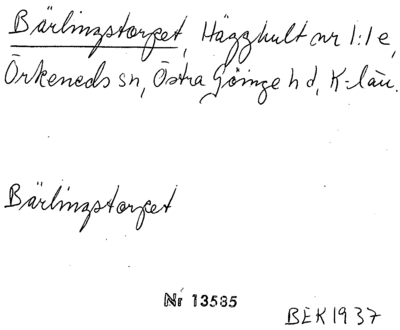 Bärlingstorpet, Hägghult nr 1:1 e,
Örkeneds sn, Östra Göinge hd, K-län.
Bärlingstorpet
Nr 13585
BEK 1937